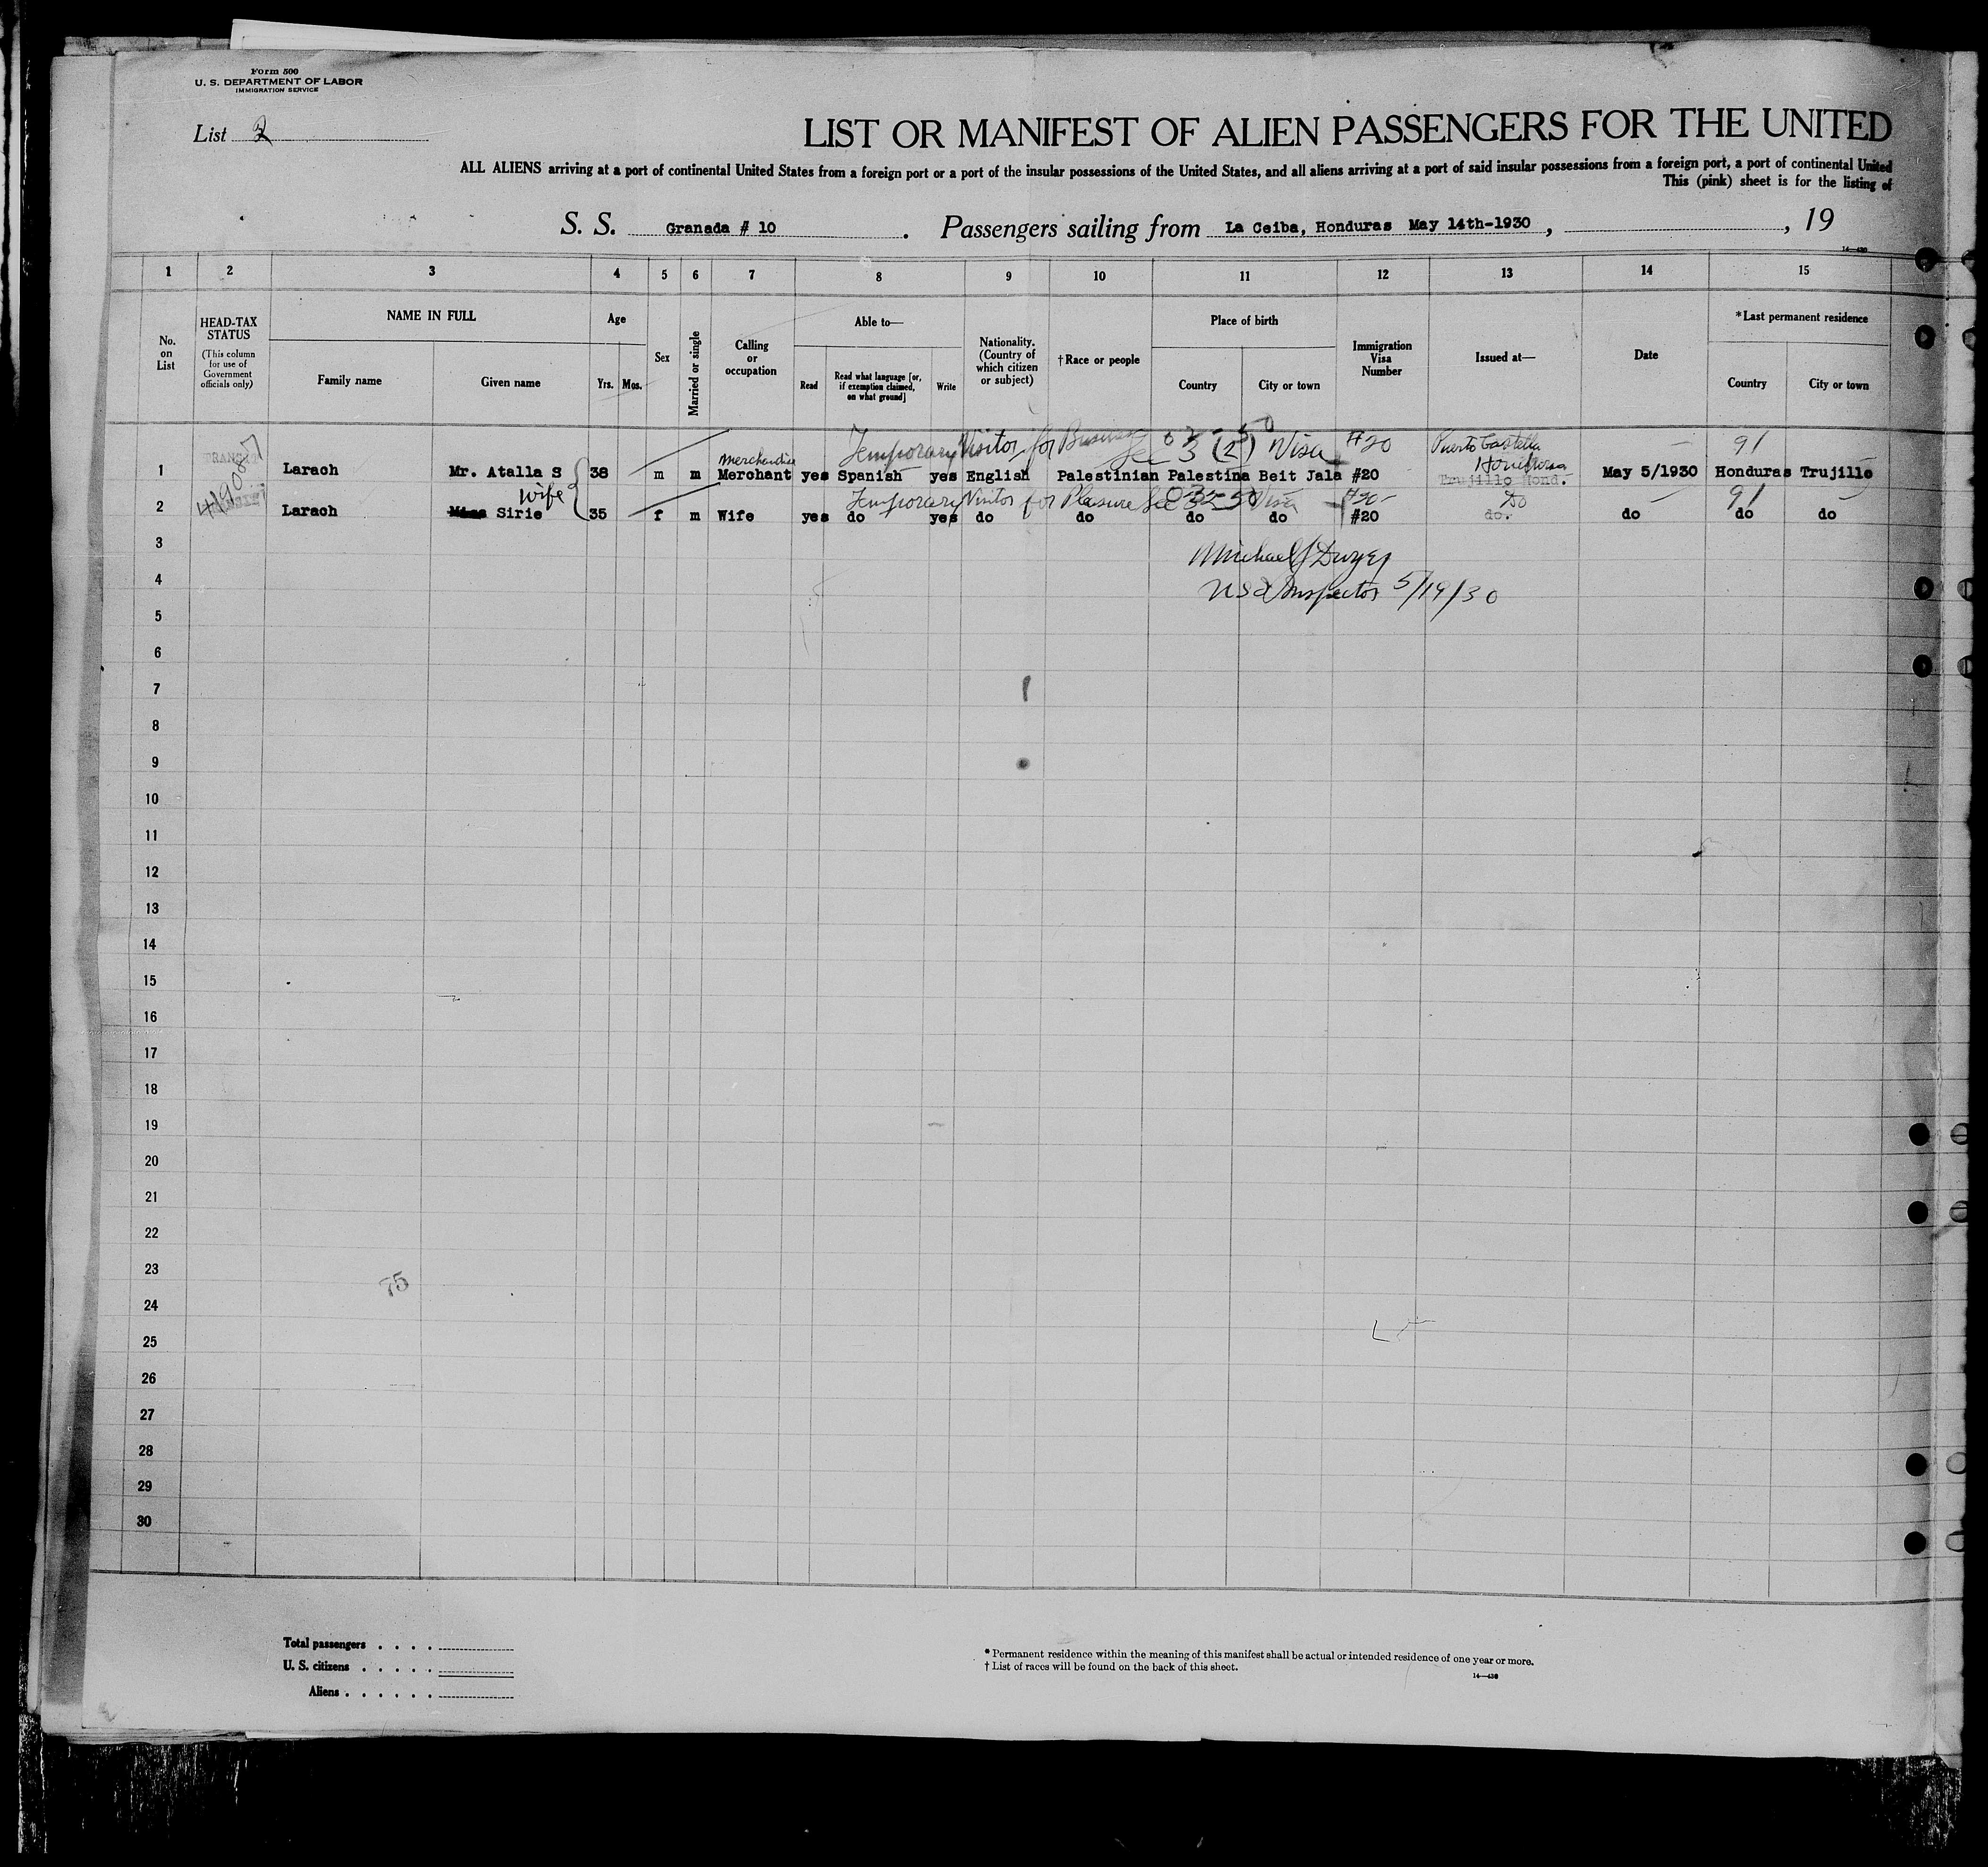 Form 500
U. S. DEPARTMENT OF LABOR
IMMIGRATION SERVICE
List 2
LIST OR MANIFEST OF ALIEN PASSENGERS FOR THE UNITED
ALL ALIENS arriving at a port of continental United States from a foreign port or a port of the insular possessions of the United States, and all aliens arriving at a port of said insular possessions from a foreign port, a port of continental United
This (pink) sheet is for the listing of
S. S. Granada # 10. Passengers sailing from La Ceiba, Honduras May 14th-1930, , 19
14—430
1 2 3 4 5 6 7 8 9 10 11 12 13 14 15
No. on List
HEAD-TAX STATUS (This column for use of Government officials only)
NAME IN FULL Family name Given name
Age Yrs. Mos.
Sex
Married or single
Calling or occupation
Able to— Read Read what language [or, if exemption claimed, on what ground] Write
Nationality. (Country of which citizen or subject)
†Race or people
Place of birth Country City or town
Immigration Visa Number
Issued at—
Date
*Last permanent residence Country City or town
Temporary Visitor for Business Sec 3 (2) Visa #20 Puerto Castilla Honduras 91
Merchandise
1 Larach Mr. Atalla S 38 m m Merchant yes Spanish yes English Palestinian Palestina Beit Jala #20 Trujillo Hond. May 5/1930 Honduras Trujillo
wife Temporary Visitor for Pleasure Sec Visa #20 Do 91
2 Larach Miss Sirie 35 f m Wife yes do yes do do do do #20 do. do do do
3 Michael J Dwyer
4 U S I Inspector 5/19/30
5
6
7
8
9
10
11
12
13
14
15
16
17
18
19
20
21
22
23
75
24
25
26
27
28
29
30
Total passengers . . . .
U. S. citizens . . . . .
Aliens . . . . . .
* Permanent residence within the meaning of this manifest shall be actual or intended residence of one year or more.
† List of races will be found on the back of this sheet.
14—430